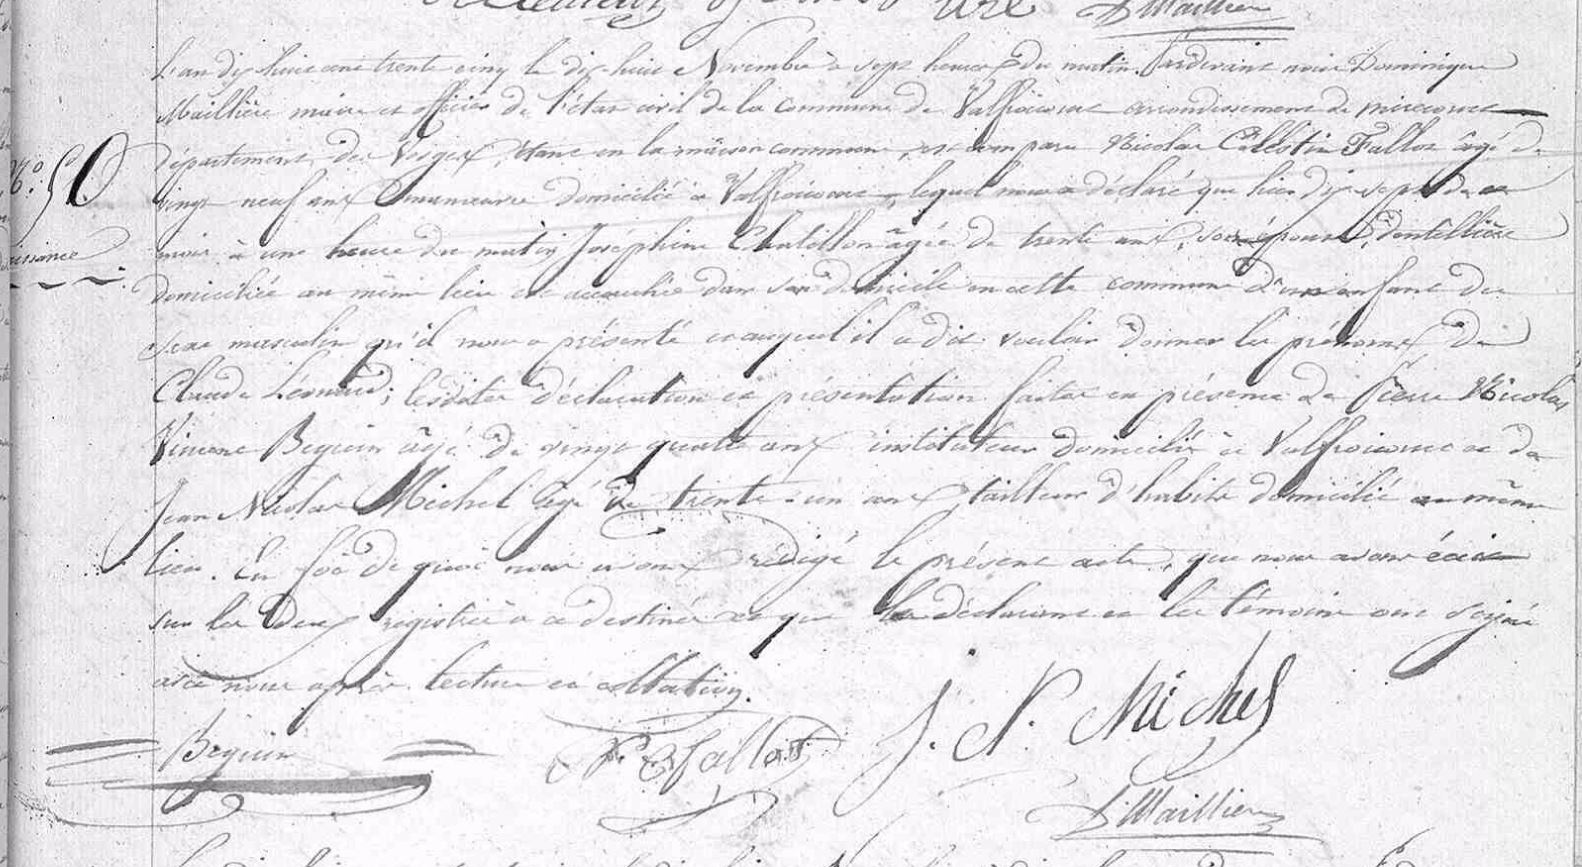 D Maillier
L'an dix huit cent trente cinq le dix-huit Novembre à sept heures du matin. Pardevant nous Dominique
Maillière maire et officier de l'état civil de la commune de Valfroicourt arrondissement de mirecourt
N.º 50
département des Vosges, étant en la maison commune, est comparu Nicolas Célestin Fallot âgé de
vingt neuf ans manoeuvre domicilié à Valfroicourt, lequel nous a déclaré que hier dix sept du ce
naissance
mois à une heure du matin Joséphine Chatillon âgée de trente ans, son épouse, dentellière
domiciliée au même lieu est accouchée dans son domicile en cette commune d'un enfant du
sexe masculin qu'il nous a présenté et auquel il a dit vouloir donner les prénoms de
Claude Leonard; lesdites déclaration et présentation faites en présence de Pierre Nicolas
Vincent Beguin âgé de vingt quatre ans instituteur domicilié à Valfroicourt et de
Jean Nicolas Michel âgé de trente un ans tailleur d'habits domicilié au même
lieu. En foi de quoi nous avons rédigé le présent acte, que nous avons écrit
sur les deux registres à ce destinés et que le déclarant et les témoins ont signé
avec nous après lecture et collation.
Beguin N. C. Fallot J. N. Michel
D Maillier